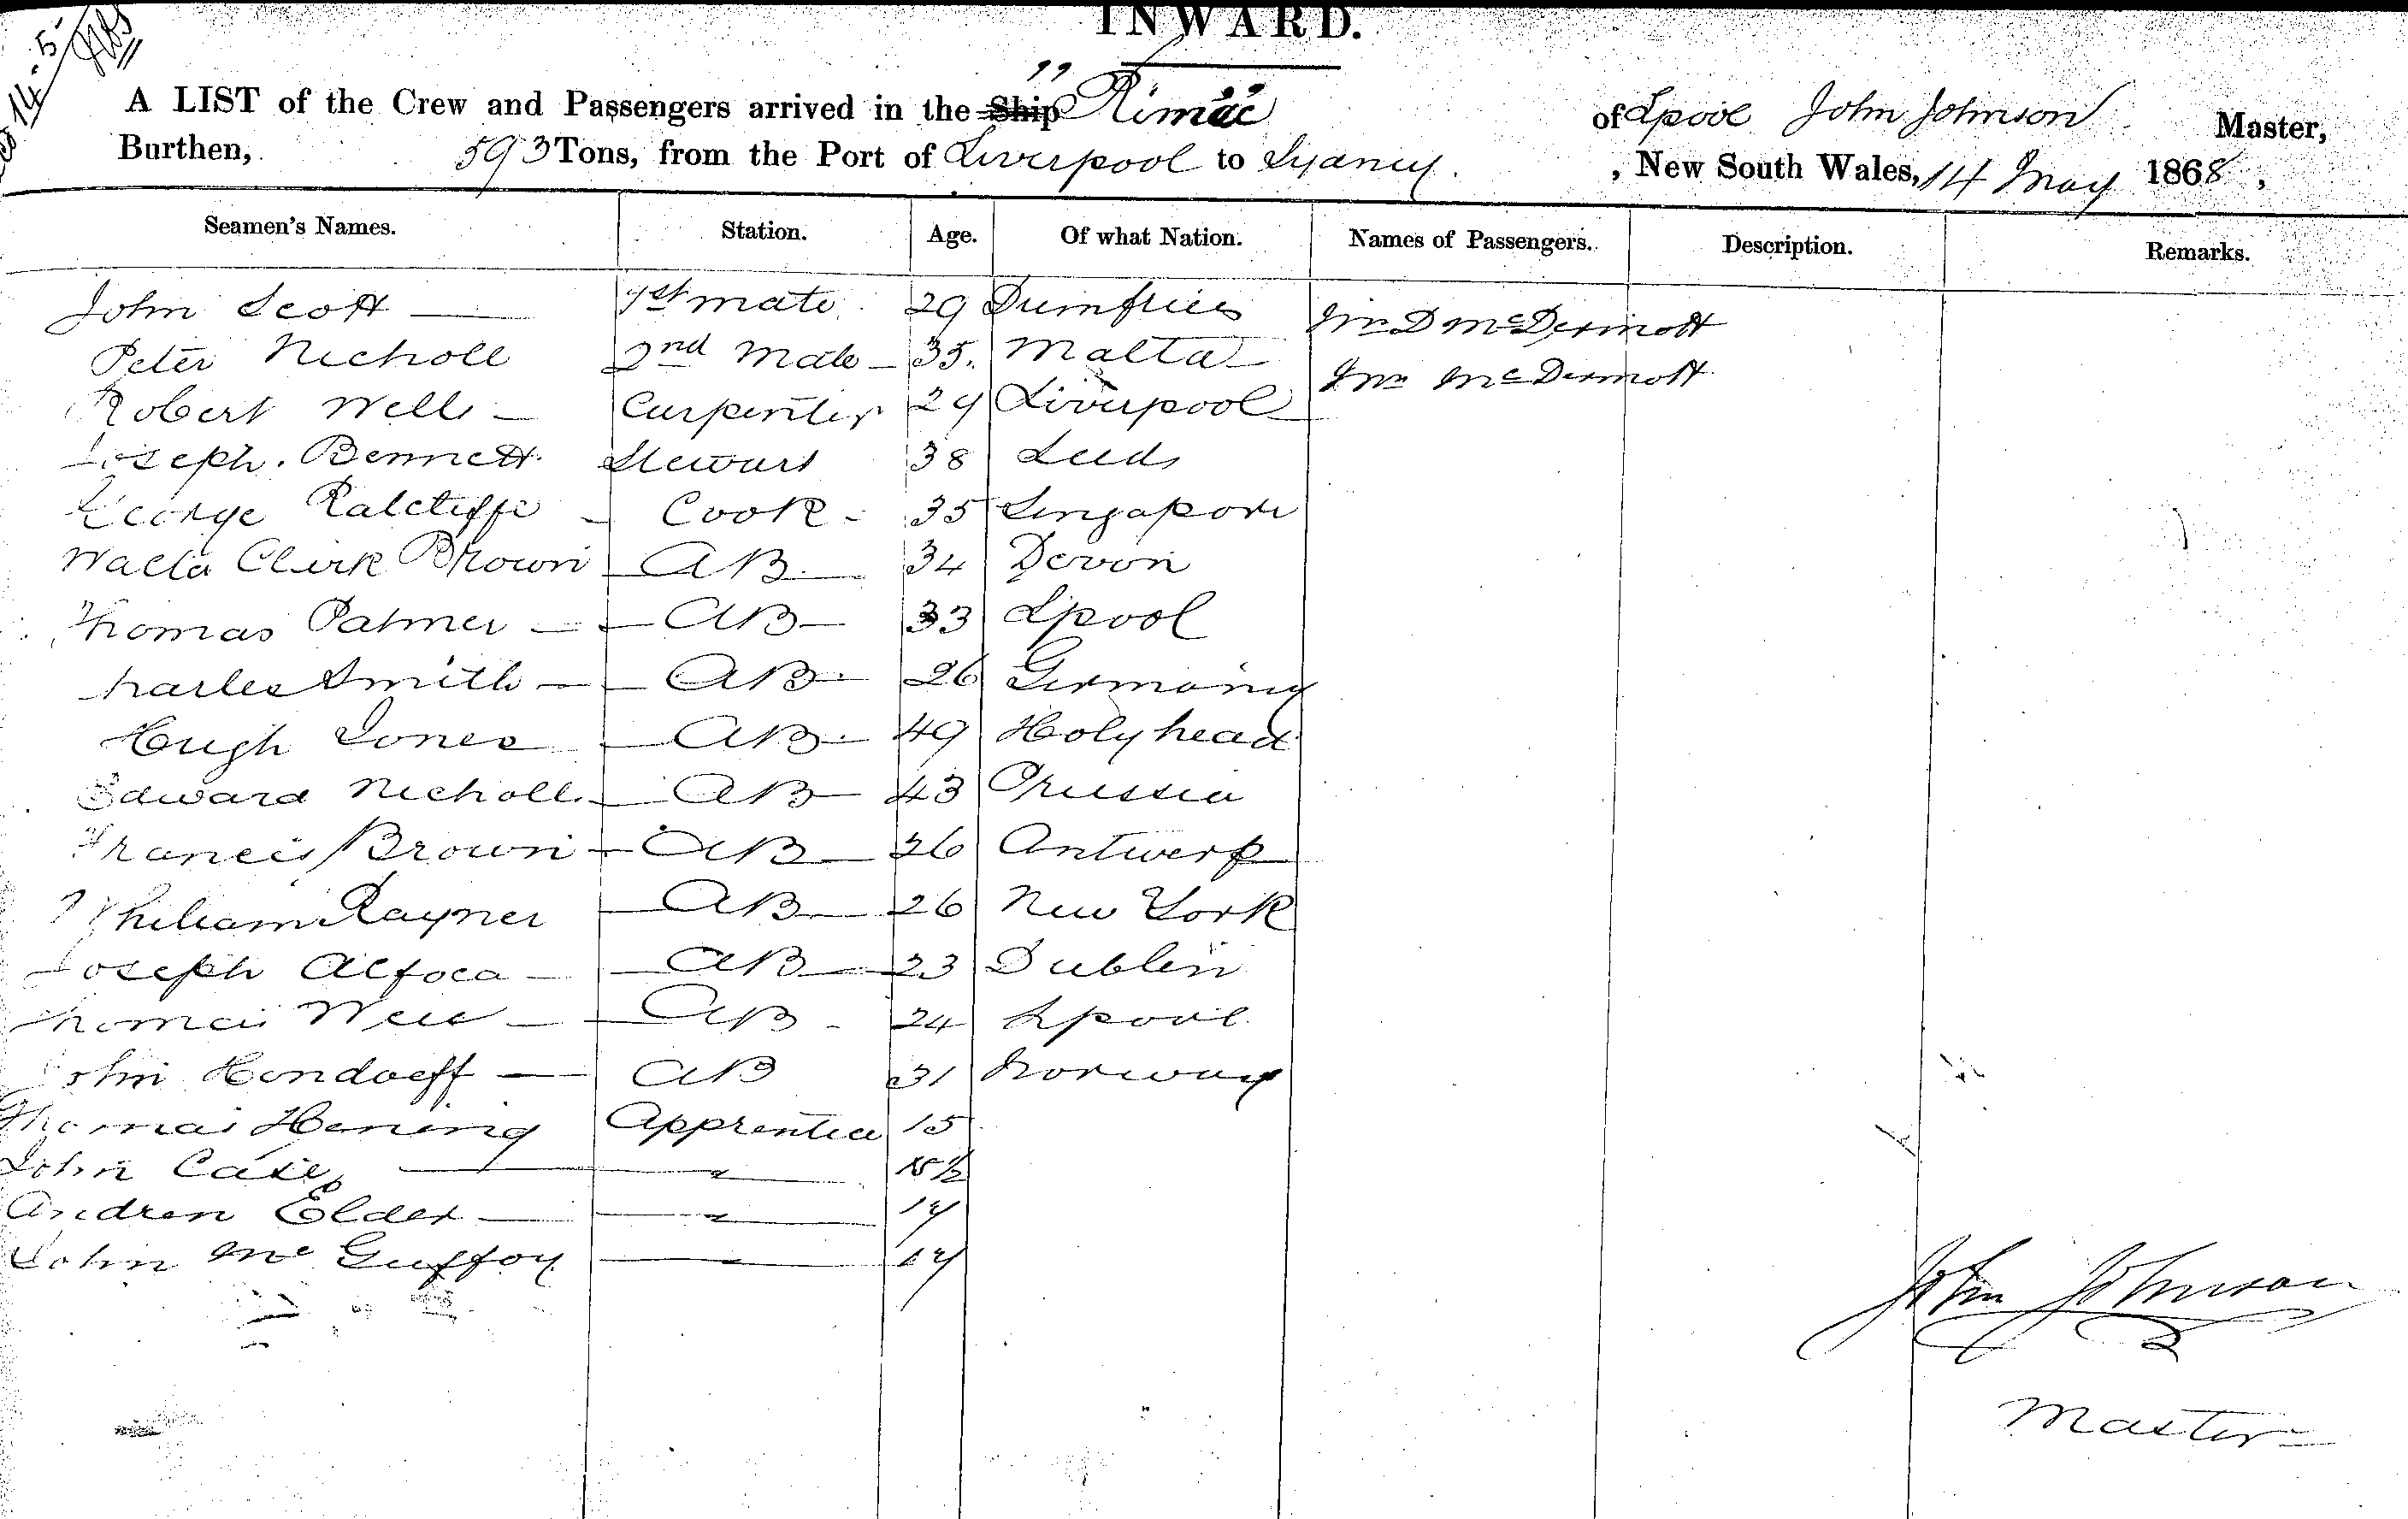 INWARD.
A LIST of the Crew and Passengers arrived in the Ship "Rimac" of Lpool John Johnson Master,
Burthen, 593 Tons, from the Port of Liverpool to Sydney, New South Wales, 14 May 1868,
Seamen's Names. Station. Age. Of what Nation. Names of Passengers. Description. Remarks.
John Scott 1st mate 29 Dumfries Mr D McDermott
Peter Nicholl 2nd Mate 35. Malta Mr McDermott
Robert Wells Carpenter 29 Liverpool
Joseph. Bennett Steward 38 Leeds
George Ratcliffe Cook 35 Singapore
Walter Clark Brown AB 34 Devon
Thomas Palmer AB 33 Lpool
Charles Smith AB 26 Germany
Hugh Jones AB 49 Holyhead
Edward Nicholl AB 43 Prussia
Francis Brown AB 26 Antwerp
William Rayner AB 26 New York
Joseph AB 23 Dublin
Thomas AB 24 Lpool
John AB 31 Norway
Thomas Hening Apprentice 15
John Casey " 15½
Andrew Elder " 17
John Mc Guffoy " 17
John Johnson
Master